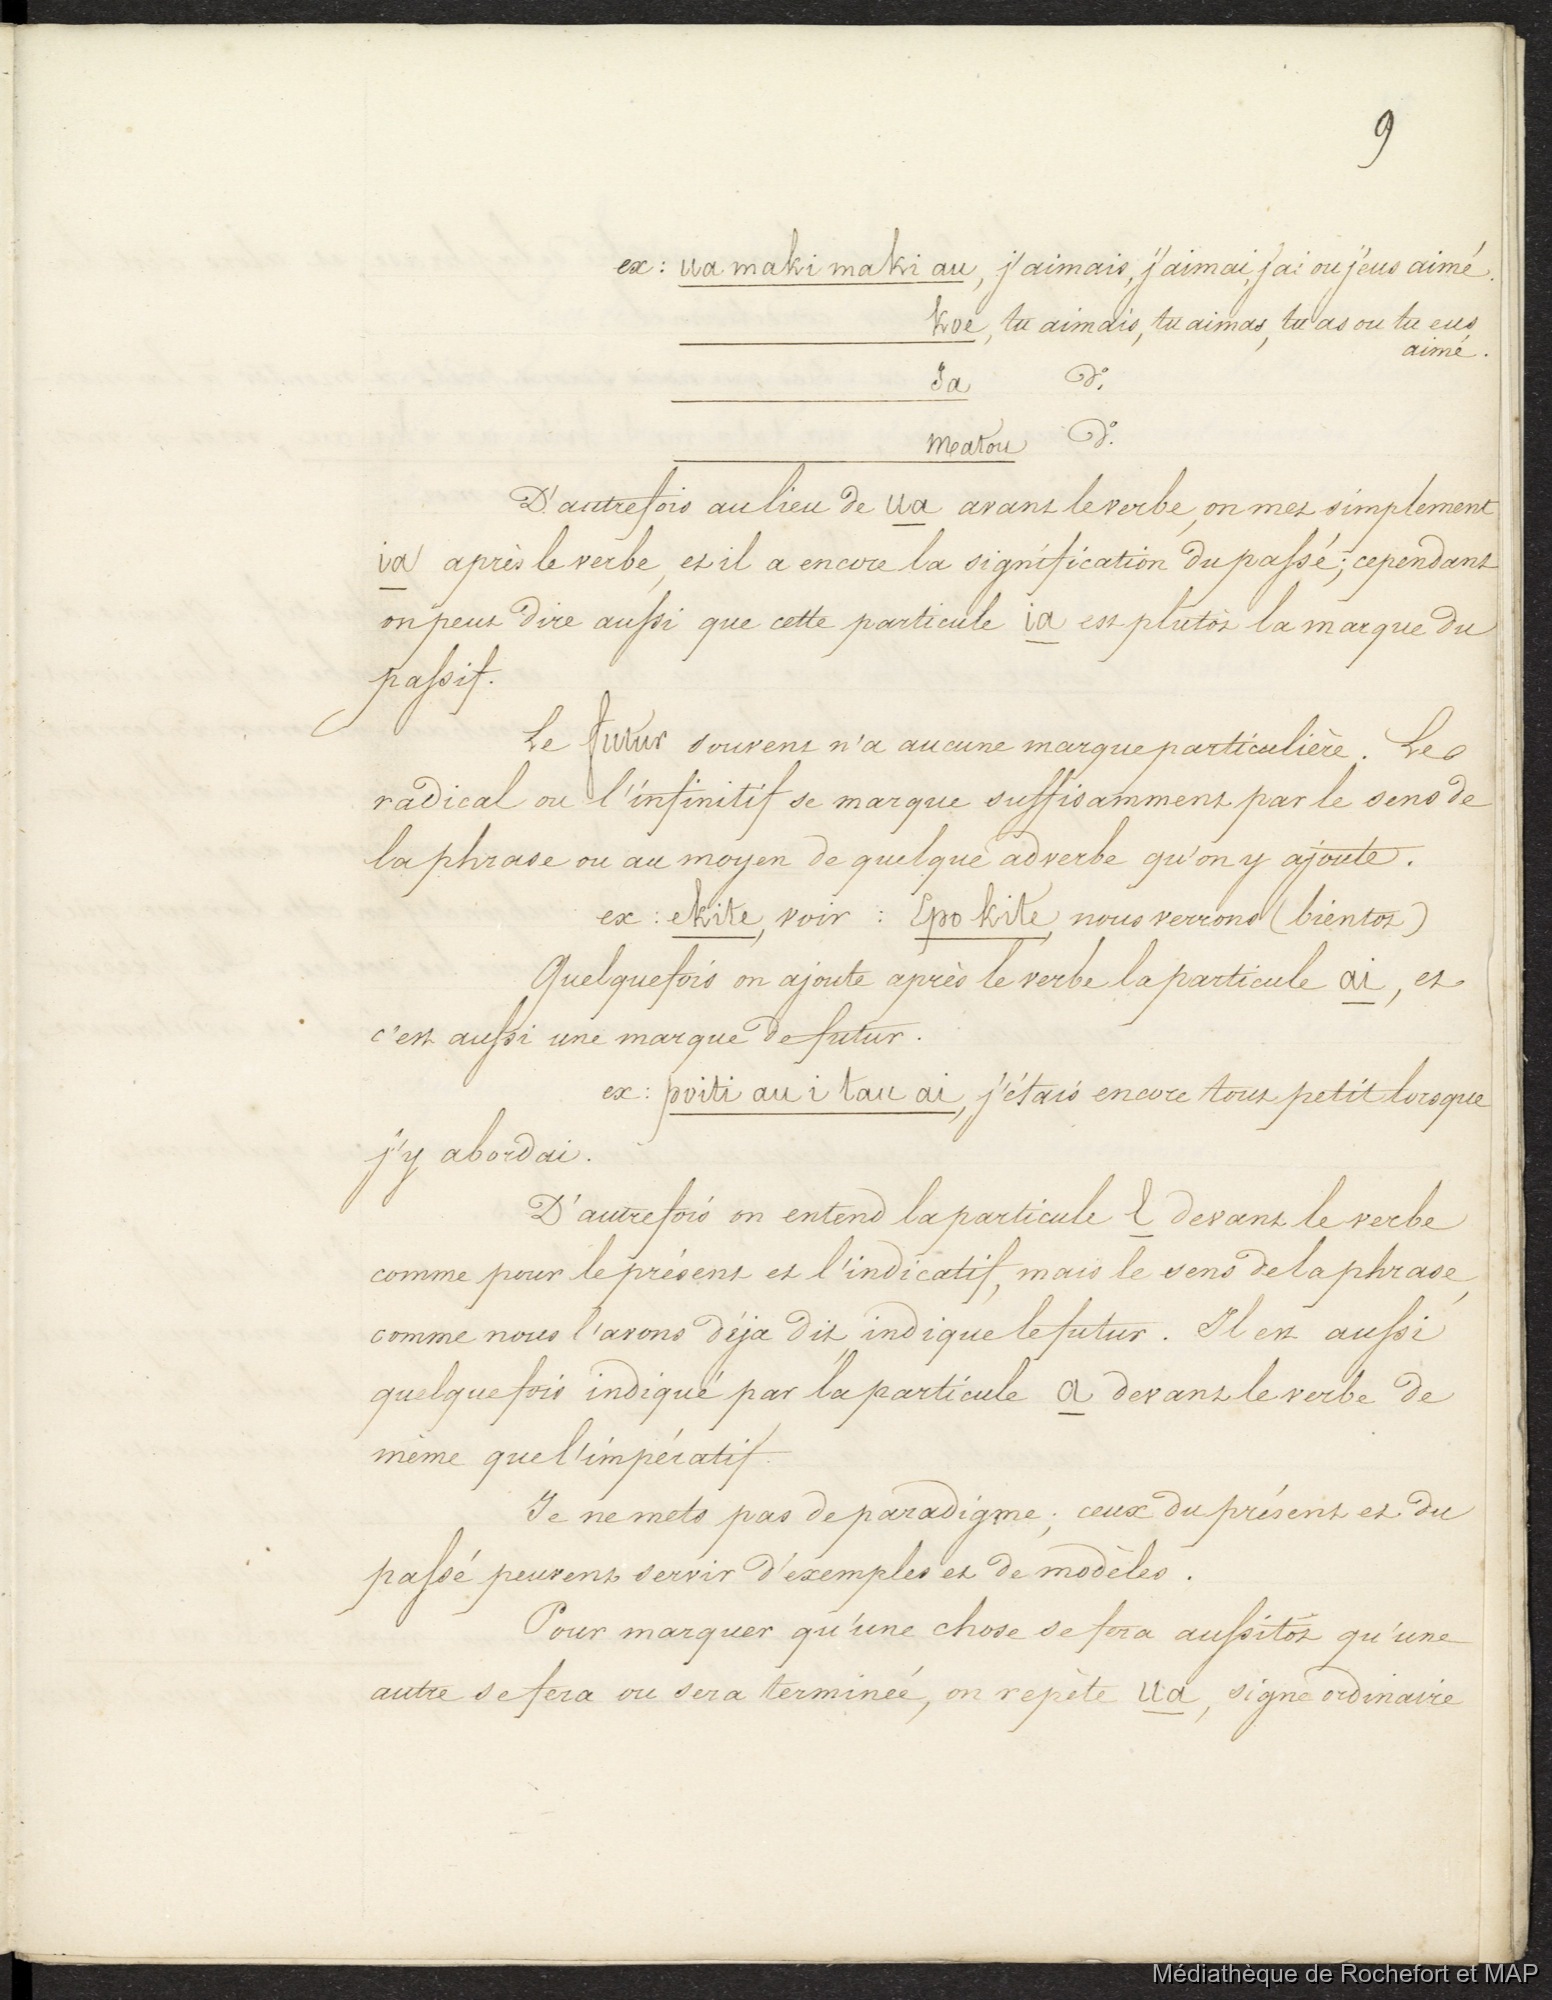 9
ex : ua maki maki au, j'aimais, j'aimai, j'ai ou j'eus aimé.
koe, tu aimais, tu aimas, tu as ou tu eus
aimé.
Ia d°.
matou d°.
D'autrefois au lieu de ua avant le verbe, on met simplement
ia après le verbe, et il a encore la signification du passé ; cependant
on peut dire aussi que cette particule ia est plutôt la marque du
passif.
Le futur souvent n'a aucune marque particulière. Le
radical ou l'infinitif se marque suffisamment par le sens de
la phrase ou au moyen de quelque adverbe qu'on y ajoute.
ex : ekite, voir : Epo kite, nous verrons (bientot)
Quelquefois on ajoute après le verbe la particule ai, et
c'est aussi une marque de futur.
ex : poiti au i tau ai, j'étais encore tout petit lorsque
j'y abordai.
D'autrefois on entend la particule E devant le verbe
comme pour le présent et l'indicatif, mais le sens de la phrase,
comme nous l'avons déja dit, indique le futur. Il est aussi
quelquefois indiqué par la particule a devant le verbe de
même que l'impératif.
Je ne mets pas de paradigme ; ceux du présent et du
passé peuvent servir d'exemples et de modèles.
Pour marquer qu'une chose se fera aussitôt qu'une
autre se fera ou sera terminée, on repète ua, signe ordinaire
Médiathèque de Rochefort et MAP